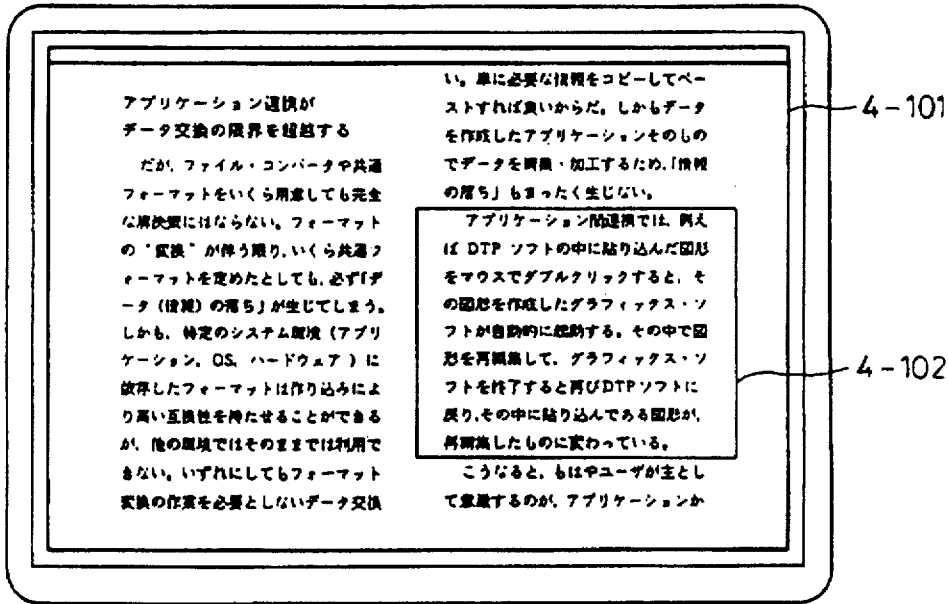 アプリケーション連携が
データ交換の限界を超越する
だが、ファイル・コンバータや共通
フォーマットをいくら用意しても完全
な解決策にはならない。フォーマット
の“変換”が伴う限り、いくら共通フ
ォーマットを定めたとしても、必ず「デ
ータ(情報)の落ち」が生じてしまう。
しかも、特定のシステム環境(アプリ
ケーション、OS、ハードウェア)に
依存したフォーマットは作り込みによ
り高い互換性を持たせることができる
が、他の環境ではそのままでは利用で
きない。いずれにしてもフォーマット
変換の作業を必要としないデータ交換
い。単に必要な情報をコピーしてペー
ストすれば良いからだ。しかもデータ
を作成したアプリケーションそのもの
でデータを編集・加工するため、「情報
の落ち」もまったく生じない。
アプリケーション間連携では、例え
ば DTP ソフトの中に貼り込んだ図形
をマウスでダブルクリックすると、そ
の図形を作成したグラフィックス・ソ
フトが自動的に起動する。その中で図
形を再編集して、グラフィックス・ソ
フトを終了すると再びDTPソフトに
戻り、その中に貼り込んである図形が、
再編集したものに変わっている。
こうなると、もはやユーザが主とし
て意識するのが、アプリケーションか
4-101
4-102